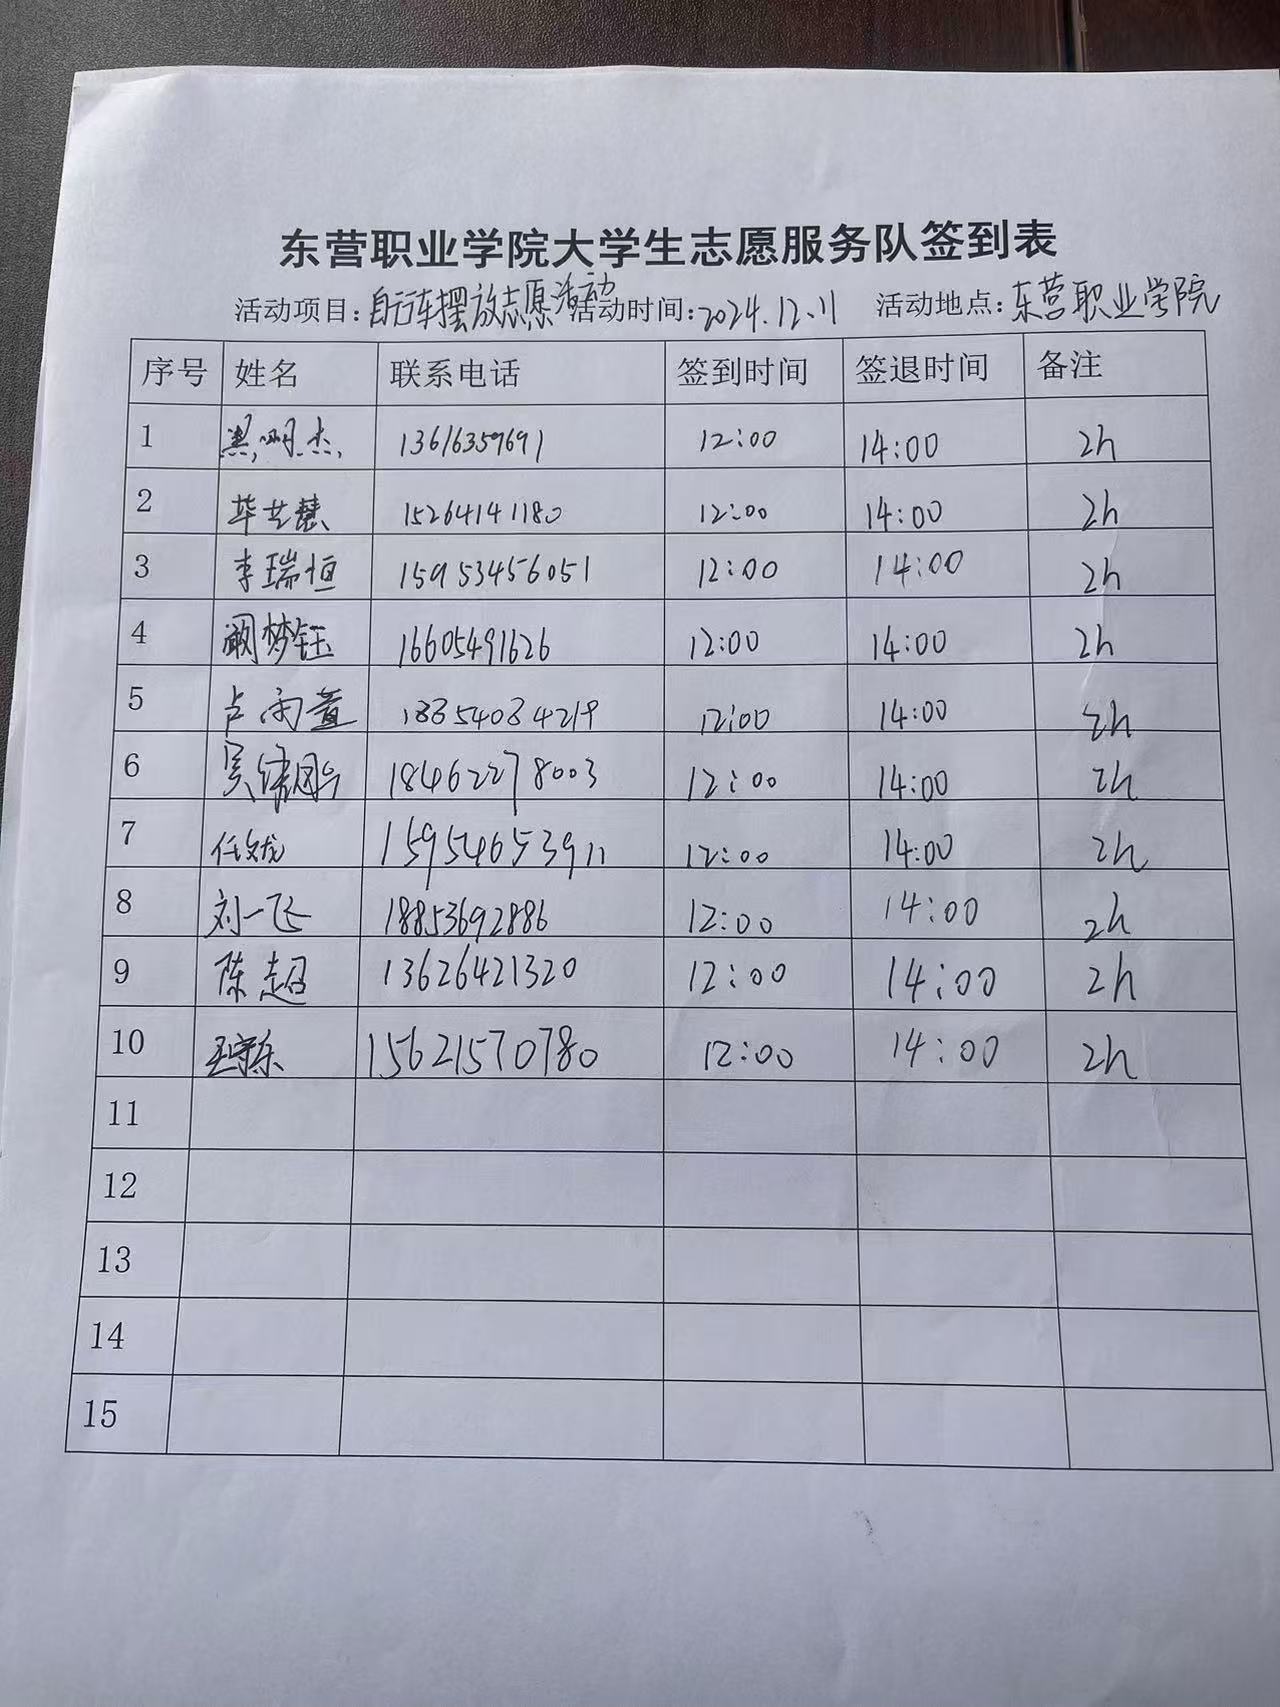 东营职业学院大学生志愿服务队签到表
活动项目：自行车摆放志愿活动 活动时间：2024.12.11 活动地点：东营职业学院
序号 姓名 联系电话 签到时间 签退时间 备注
1 明杰 13616359691 12:00 14:00 2h
2 毕艺慧 15264141180 12:00 14:00 2h
3 李瑞恒 15953456051 12:00 14:00 2h
4 阚梦钰 16605491626 12:00 14:00 2h
5 卢雨萱 12:00 14:00 2h
6 吴 18462278003 12:00 14:00 2h
7 任文龙 15954653911 12:00 14:00 2h
8 刘一飞 18853692886 12:00 14:00 2h
9 陈超 13626421320 12:00 14:00 2h
10 王守东 15621570780 12:00 14:00 2h
11
12
13
14
15